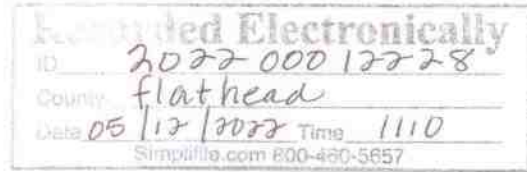 Recorded Electronically
ID 2022 000 12228
County flathead
Date 05/12/2022 Time 1110
Simplifile.com 800-460-5657